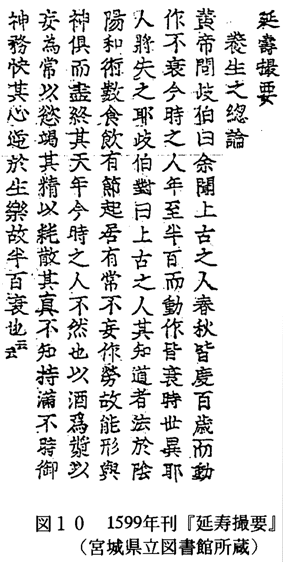 延壽撮要
養生之總論
黄帝問歧伯曰余聞上古之人春秋皆度百歳而動
作不衰今時之人年至半百而動作皆衰時世異耶
人將失之耶歧伯對曰上古之人其知道者法於陰
陽和術數食飲有節起居有常不妄作勞故能形與
神俱而盡終其天年今時之人不然也以酒爲漿以
妄爲常以慾竭其精以耗散其真不知持滿不時御
神務快其心逆於生樂故半百衰也云云
図10 1599年刊『延寿撮要』
(宮城県立図書館所蔵)